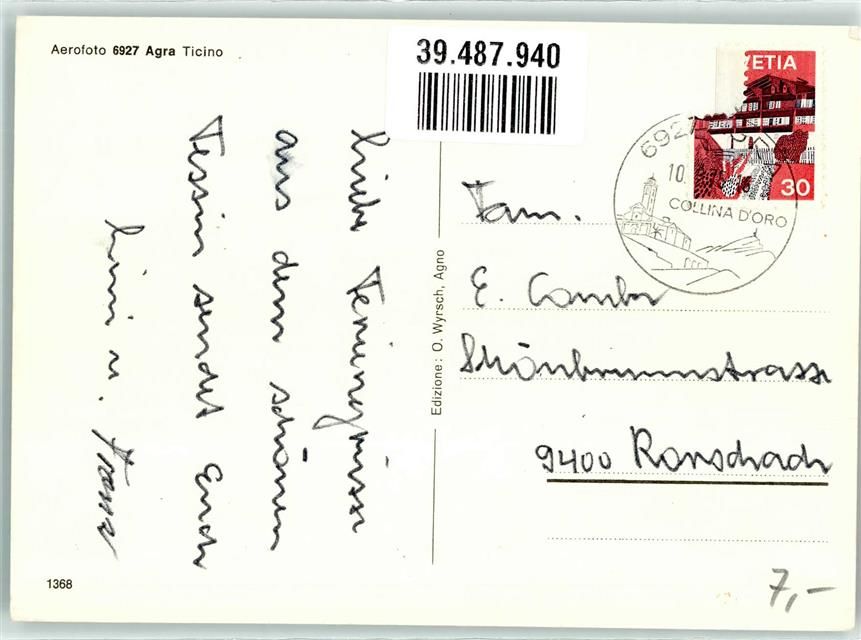 Aerofoto 6927 Agra Ticino
39.487.940
HELVETIA
30
6927
10.
COLLINA D'ORO
liebe Feriengrüsse
aus dem schönen
Tessin sendet Euch
u. Franz
Edizione: O. Wyrsch, Agno
Fam.
E.
Schönbrunnstrasse
9400 Rorschach
1368
7,-